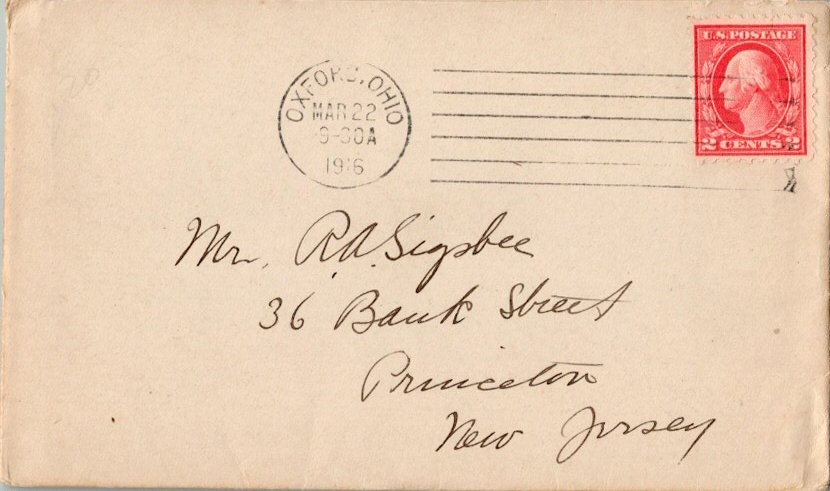 OXFORD, OHIO
MAR 22
9-30A
1916
U.S. POSTAGE
2 CENTS 2
Mr. R.A. Sigsbee
36 Bank Street
Princeton
New Jersey